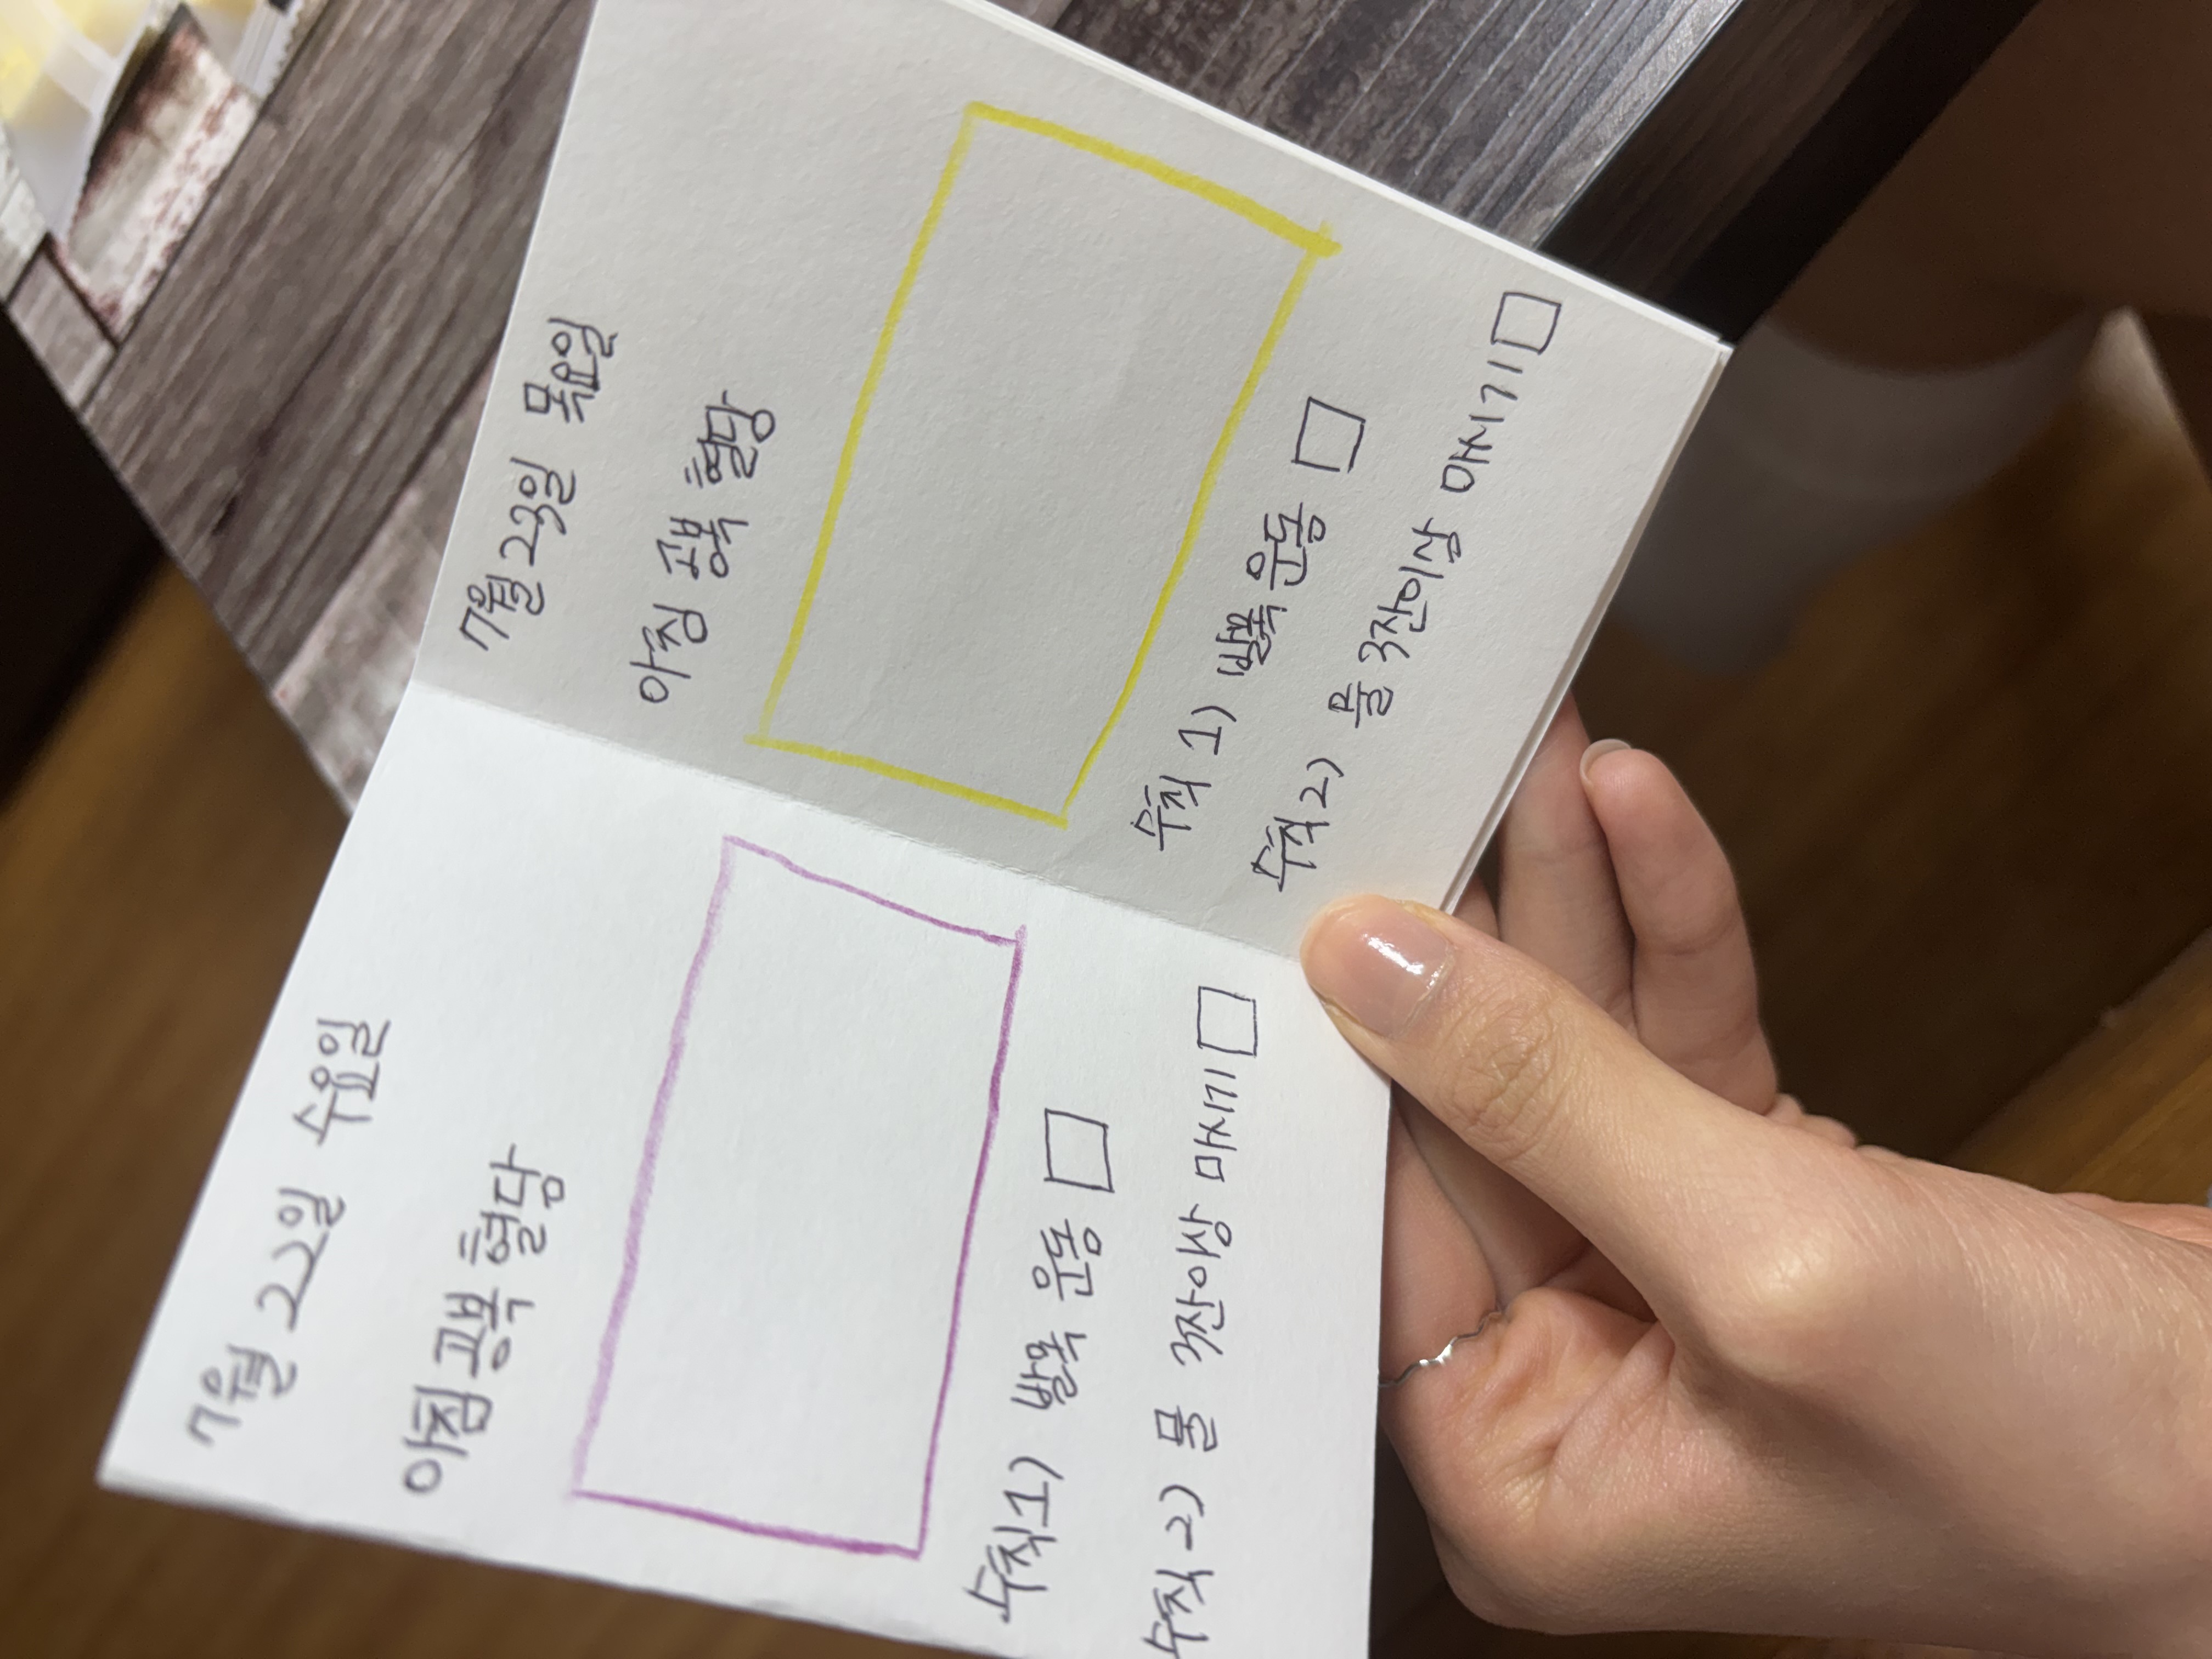 7월 22일 수요일
아침 공복 혈당
수칙 1) 발목 운동
수칙 2) 물 3잔이상 마시기
7월 23일 목요일
아침 공복 혈당
수칙 1) 발목 운동
수칙 2) 물 3잔이상 마시기